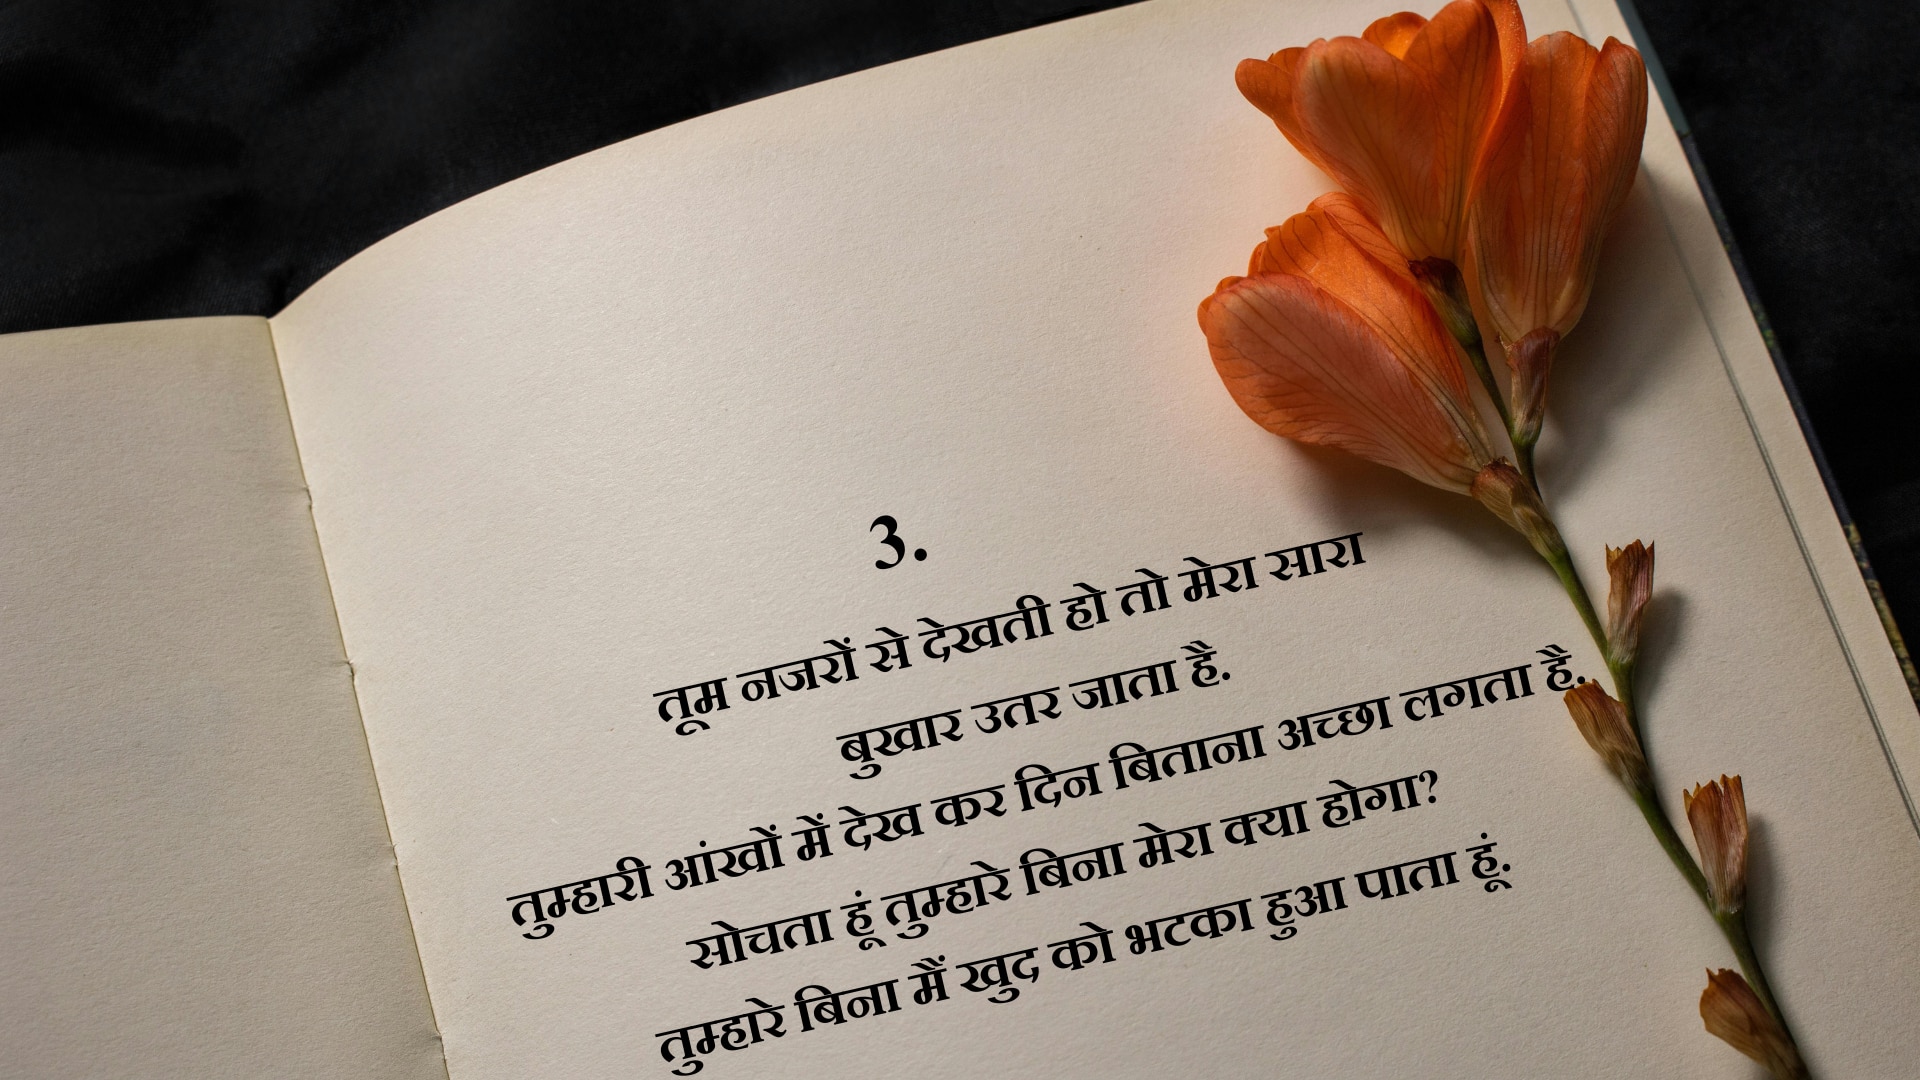 3.
तूम नजरों से देखती हो तो मेरा सारा
बुखार उतर जाता है.
तुम्हारी आंखों में देख कर दिन बिताना अच्छा लगता है.
सोचता हूं तुम्हारे बिना मेरा क्या होगा?
तुम्हारे बिना मैं खुद को भटका हुआ पाता हूं.